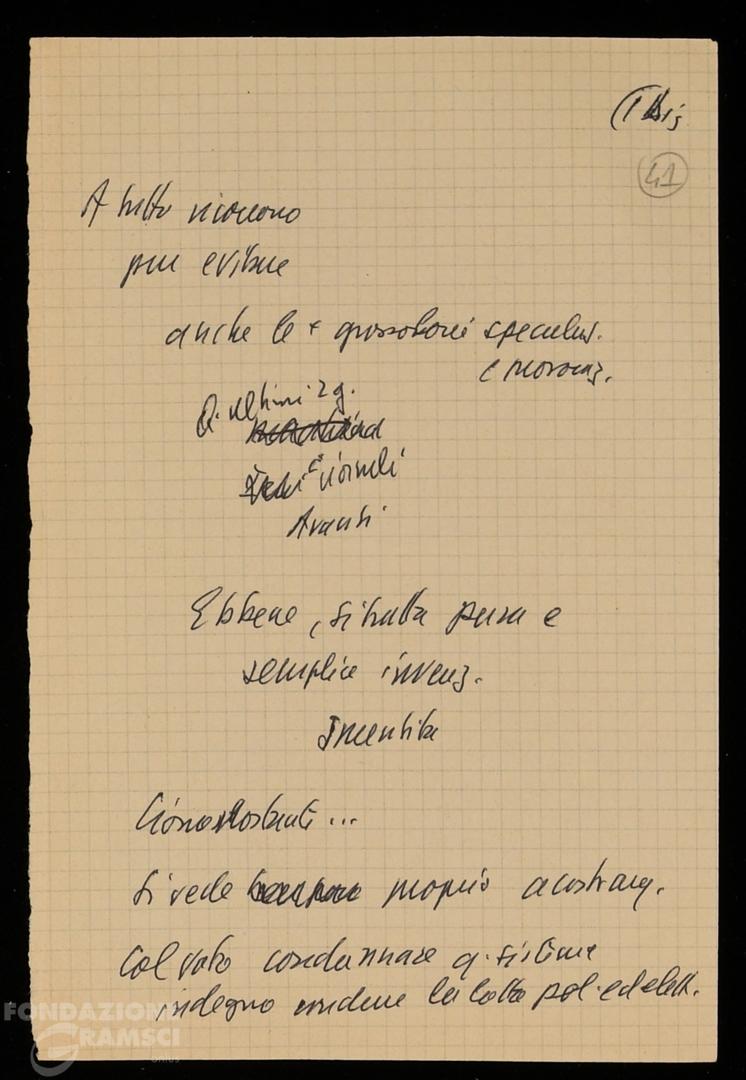 (1 bis
41
A tutto ricorrono
pur evitare
anche le + grossolane speculaz.
e provocaz.
Q. ultimi 2 g.
Avanti
Ebbene, si tratta pura e
semplice invenz.
Smentita
Ciononostante...
Si vede proprio a costrang.
Col voto condannare q. sistema
indegno condurre la lotta pol. ed elett.
FONDAZIONE
GRAMSCI
onlus